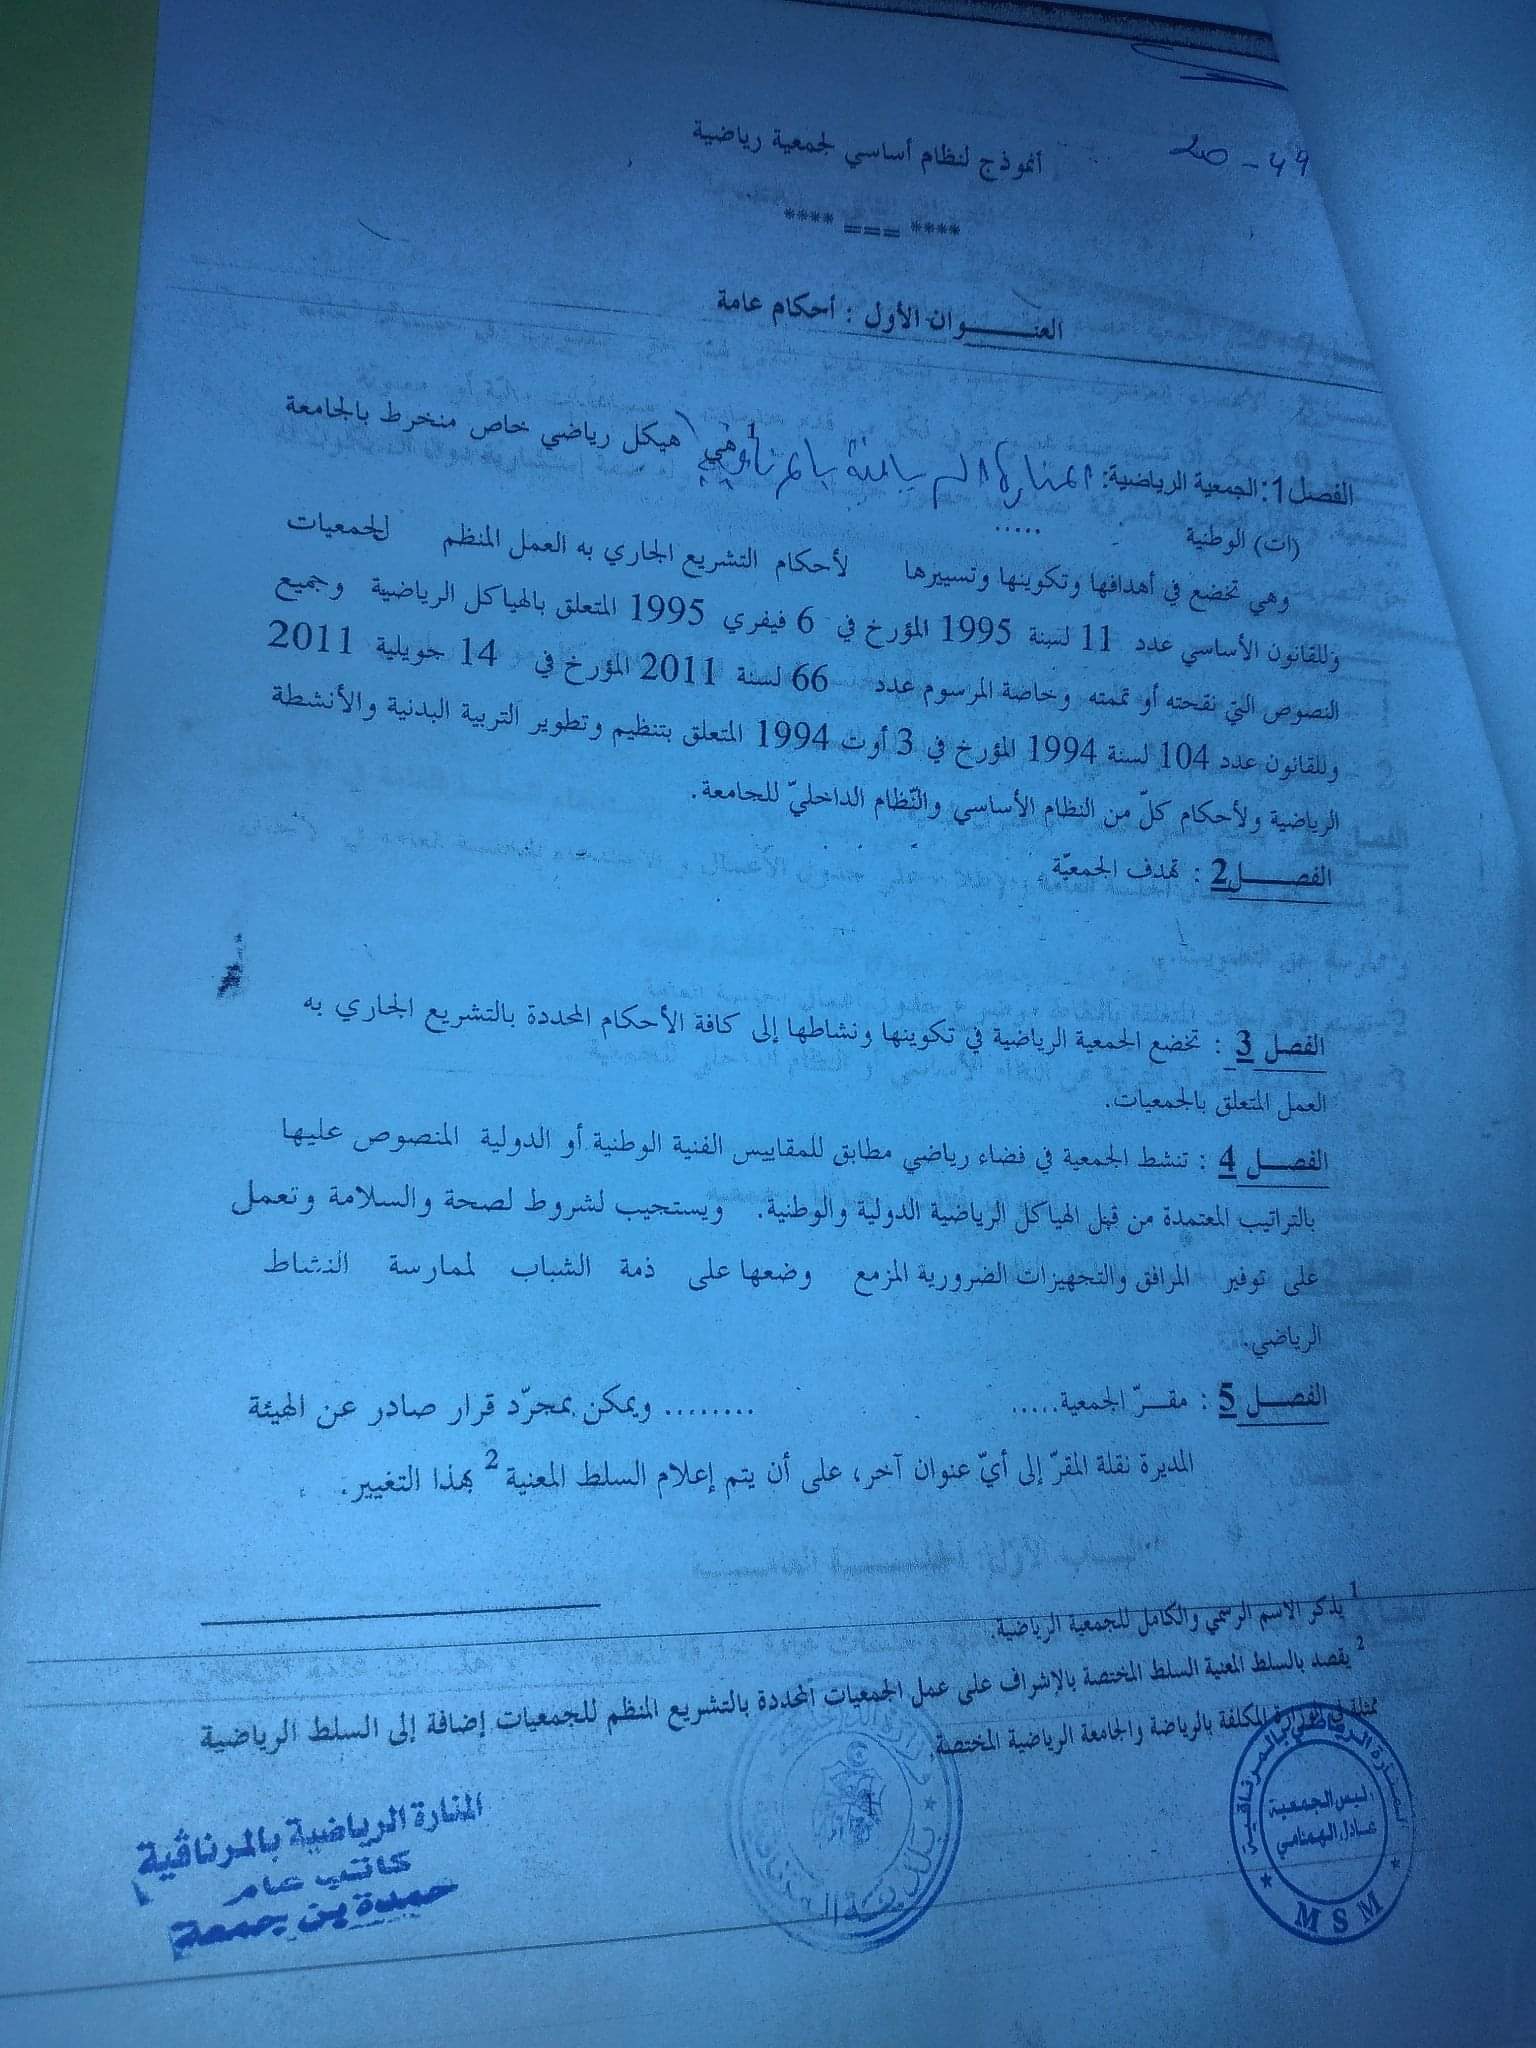 20-49
أنموذج لنظام أساسي لجمعية رياضية
**** === ****
العنـــــوان الأول : أحكام عامة
الفصل 1: الجمعية الرياضية: المنارة الرياضية بالمرناقية 1 هي هيكل رياضي خاص منخرط بالجامعة
(ات) الوطنية .....
وهي تخضع في أهدافها وتكوينها وتسييرها لأحكام التشريع الجاري به العمل المنظم للجمعيات
وللقانون الأساسي عدد 11 لسنة 1995 المؤرخ في 6 فيفري 1995 المتعلق بالهياكل الرياضية وجميع
النصوص التي نقحته أو تممته وخاصة المرسوم عدد 66 لسنة 2011 المؤرخ في 14 جويلية 2011
وللقانون عدد 104 لسنة 1994 المؤرخ في 3 أوت 1994 المتعلق بتنظيم وتطوير التربية البدنية والأنشطة
الرياضية ولأحكام كلّ من النظام الأساسي والنّظام الداخليّ للجامعة.
الفصـــــل2 : تهدف الجمعيّة
الفصل 3 : تخضع الجمعية الرياضية في تكوينها ونشاطها إلى كافة الأحكام المحددة بالتشريع الجاري به
العمل المتعلق بالجمعيات.
الفصـــل 4 : تنشط الجمعية في فضاء رياضي مطابق للمقاييس الفنية الوطنية أو الدولية المنصوص عليها
بالتراتيب المعتمدة من قبل الهياكل الرياضية الدولية والوطنية. ويستجيب لشروط لصحة والسلامة وتعمل
على توفير المرافق والتجهيزات الضرورية المزمع وضعها على ذمة الشباب لممارسة النشاط
الرياضي.
الفصـــل 5 : مقـــرّ الجمعية..... ........ ويمكن بمجرّد قرار صادر عن الهيئة
المديرة نقلة المقرّ إلى أيّ عنوان آخر، على أن يتم إعلام السلط المعنية 2 بهذا التغيير.
1 يذكر الاسم الرسمي والكامل للجمعية الرياضية.
2 يقصد بالسلط المعنية السلط المختصة بالإشراف على عمل الجمعيات المحددة بالتشريع المنظم للجمعيات إضافة إلى السلط الرياضية
ممثلة في الوزارة المكلفة بالرياضة والجامعة الرياضية المختصة.
المنارة الرياضية بالمرناقية
كاتب عام
حمدة بن جمعة
المنارة الرياضية بالمرناقية
رئيس الجمعية
عادل الهمامي
MSM